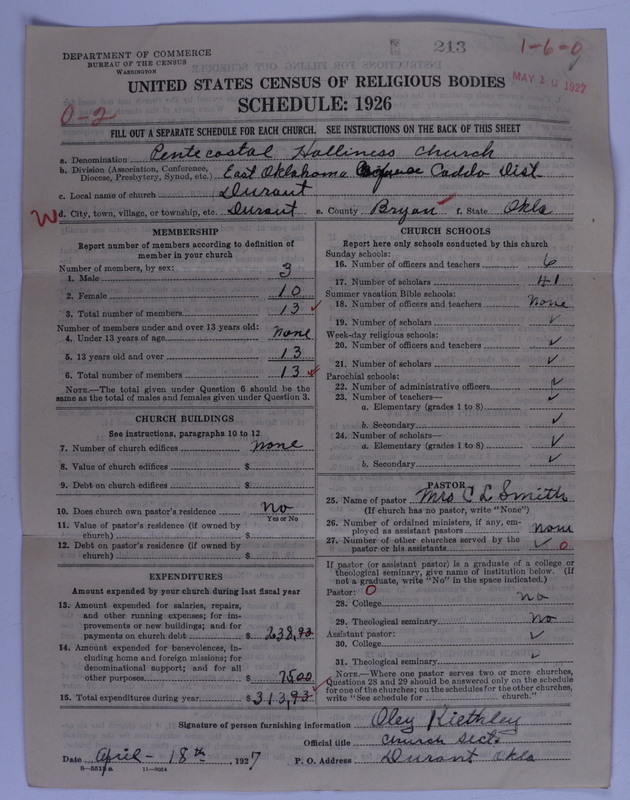 213
1-6-0
DEPARTMENT OF COMMERCE
BUREAU OF THE CENSUS
WASHINGTON
MAY 10 1927
UNITED STATES CENSUS OF RELIGIOUS BODIES
SCHEDULE: 1926
0-2
FILL OUT A SEPARATE SCHEDULE FOR EACH CHURCH. SEE INSTRUCTIONS ON THE BACK OF THIS SHEET
a. Denomination Pentecostal Holliness Church
b. Division (Association, Conference, Diocese, Presbytery, Synod, etc.) East Oklahoma Caddo Dist
c. Local name of church Durant
W d. City, town, village, or township, etc. Durant e. County Bryan f. State Okla
MEMBERSHIP
Report number of members according to definition of
member in your church
Number of members, by sex:
1. Male 3
2. Female 10
3. Total number of members 13 ✓
Number of members under and over 13 years old:
4. Under 13 years of age none
5. 13 years old and over 13
6. Total number of members 13 ✓
NOTE.—The total given under Question 6 should be the
same as the total of males and females given under Question 3.
CHURCH BUILDINGS
See instructions, paragraphs 10 to 12
7. Number of church edifices none
8. Value of church edifices $
9. Debt on church edifices $
10. Does church own pastor's residence no
Yes or No
11. Value of pastor's residence (if owned by
church) $
12. Debt on pastor's residence (if owned by
church) $
EXPENDITURES
Amount expended by your church during last fiscal year
13. Amount expended for salaries, repairs,
and other running expenses; for im-
provements or new buildings; and for
payments on church debt $ 238.93
14. Amount expended for benevolences, in-
cluding home and foreign missions; for
denominational support; and for all
other purposes $ 75.00
15. Total expenditures during year $ 313.93 ✓
CHURCH SCHOOLS
Report here only schools conducted by this church
Sunday schools:
16. Number of officers and teachers 6
17. Number of scholars 41
Summer vacation Bible schools:
18. Number of officers and teachers none
19. Number of scholars ✓
Week-day religious schools:
20. Number of officers and teachers ✓
21. Number of scholars ✓
Parochial schools:
22. Number of administrative officers ✓
23. Number of teachers— ✓
a. Elementary (grades 1 to 8)
b. Secondary ✓
24. Number of scholars—
a. Elementary (grades 1 to 8) ✓
b. Secondary ✓
PASTOR
25. Name of pastor Mrs C L Smith
(If church has no pastor, write "None")
26. Number of ordained ministers, if any, em-
ployed as assistant pastors none
27. Number of other churches served by the
pastor or his assistants ✓ 0
If pastor (or assistant pastor) is a graduate of a college or
theological seminary, give name of institution below. (If
not a graduate, write "No" in the space indicated.)
Pastor: 0
28. College no
29. Theological seminary no
Assistant pastor: ✓
30. College
31. Theological seminary ✓
NOTE.—Where one pastor serves two or more churches,
Questions 28 and 29 should be answered only on the schedule
for one of the churches; on the schedules for the other churches,
write "See schedule for church."
Signature of person furnishing information Oley Kiethley
Official title Church Sect
Date April - 18th, 1927 P. O. Address Durant Okla
8-5513a 11-9054